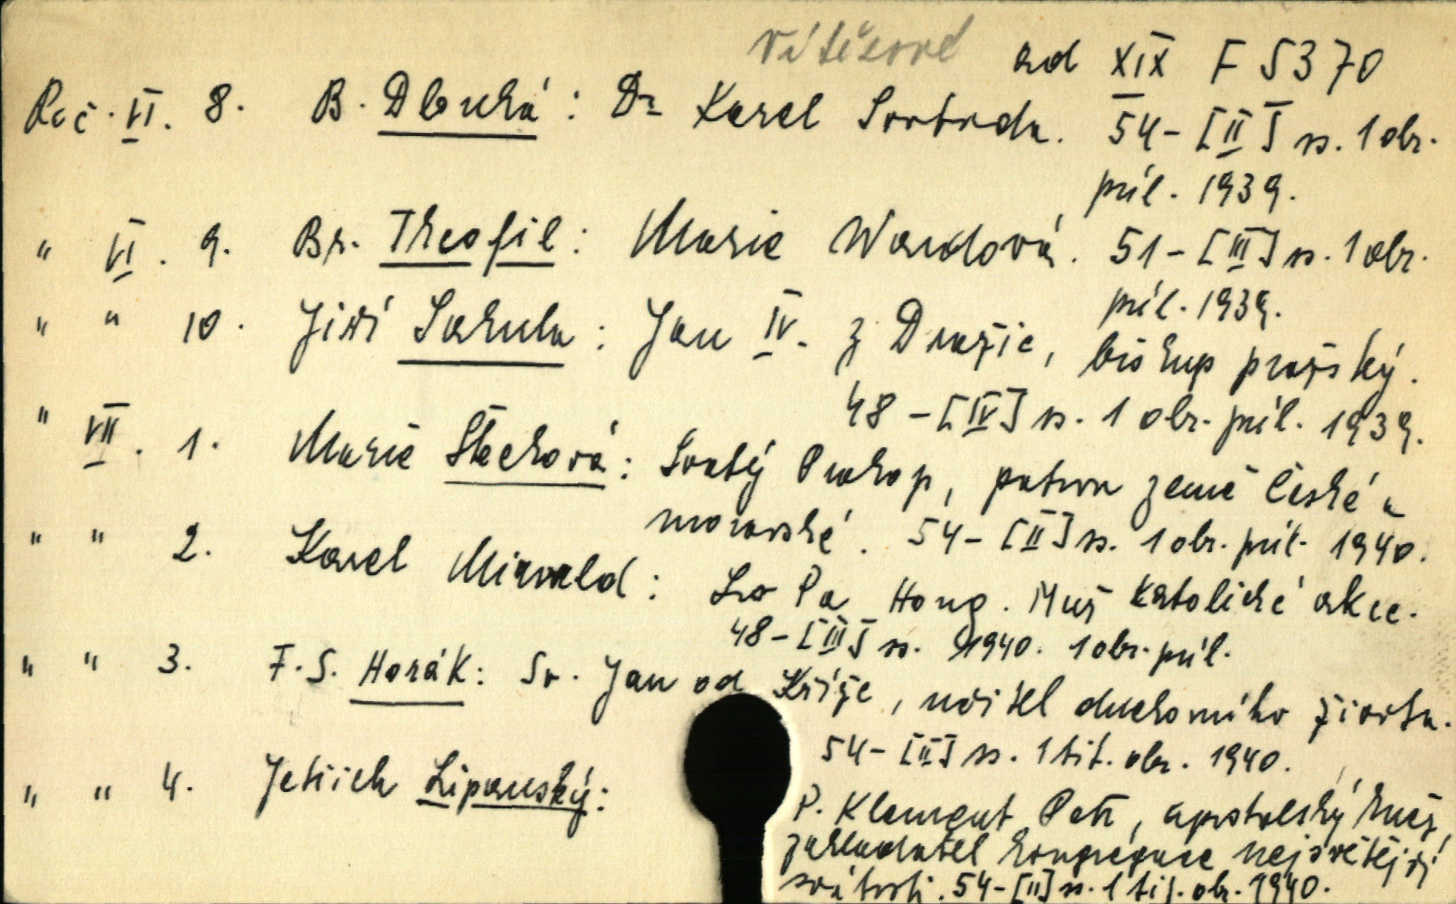 Vítězové ad XIX F 5370
Roč. VI. 8. B. Dlouhá: Dr Karel Svoboda. 54-[II] ss. 1 obr.
příl. 1939.
" VI. 9. Br. Theofil: Marie Wardová. 51-[III] ss. 1 obr.
příl. 1939.
" " 10. Jiří Sahula: Jan IV. z Dražic, biskup pražský.
48-[IV] ss. 1 obr. příl. 1939.
" VII. 1. Marie Štechová: Svatý Prokop, patron země české a
moravské. 54-[II] ss. 1 obr. příl. 1940.
" " 2. Karel Mirvald: Lo Pa Hong. Muž katolické akce.
48-[III] ss. 1940. 1 obr. příl.
" " 3. F. S. Horák: Sv. Jan od Kříže, učitel duchovního života.
54-[II] ss. 1 tit. obr. 1940.
" " 4. Jetřich Lipanský:
P. Klement Petr, apoštolský kněz,
zakladatel kongregace nejsvětější
svátosti. 54-[II] ss. 1 tit. obr. 1940.